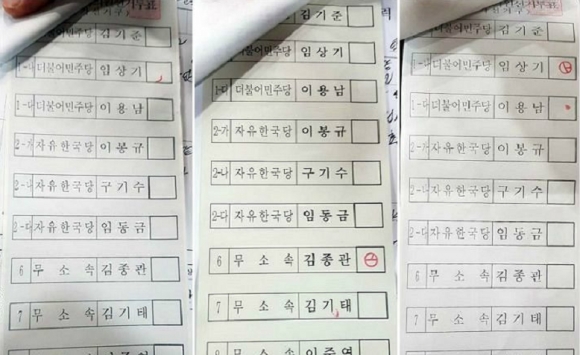 더불어민주당 김기준
1-나 더불어민주당 임상기
1-다 더불어민주당 이용남
2-가 자유한국당 이봉규
2-나 자유한국당 구기수
2-다 자유한국당 임동금
6 무소속 김종관
7 무소속 김기태
김기준
1-나 더불어민주당 임상기
1-다 더불어민주당 이용남
2-가 자유한국당 이봉규
2-나 자유한국당 구기수
2-다 자유한국당 임동금
6 무소속 김종관
7 무소속 김기태
김기준
1-나 더불어민주당 임상기
1-다 더불어민주당 이용남
2-가 자유한국당 이봉규
2-나 자유한국당 구기수
2-다 자유한국당 임동금
6 무소속 김종관
7 무소속 김기태